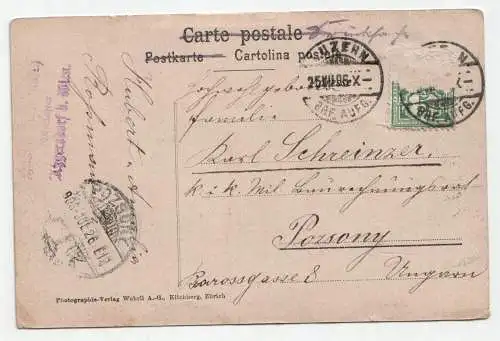 Carte postale
Drucksache
Postkarte Cartolina postale
LUZERN
25.VII.06-X
BRF. AUFG.
BRF. AUFG.
Hochwohlgeboren
Familie
Karl Schreinzer
k. u. k. Mil. Baurechnungsrat
Pozsony
Barossgasse 8 Ungarn
Hubert
Rossmann
POZSONY
906 JUL 26
Photographie-Verlag Wehrli A.-G., Kilchberg, Zürich